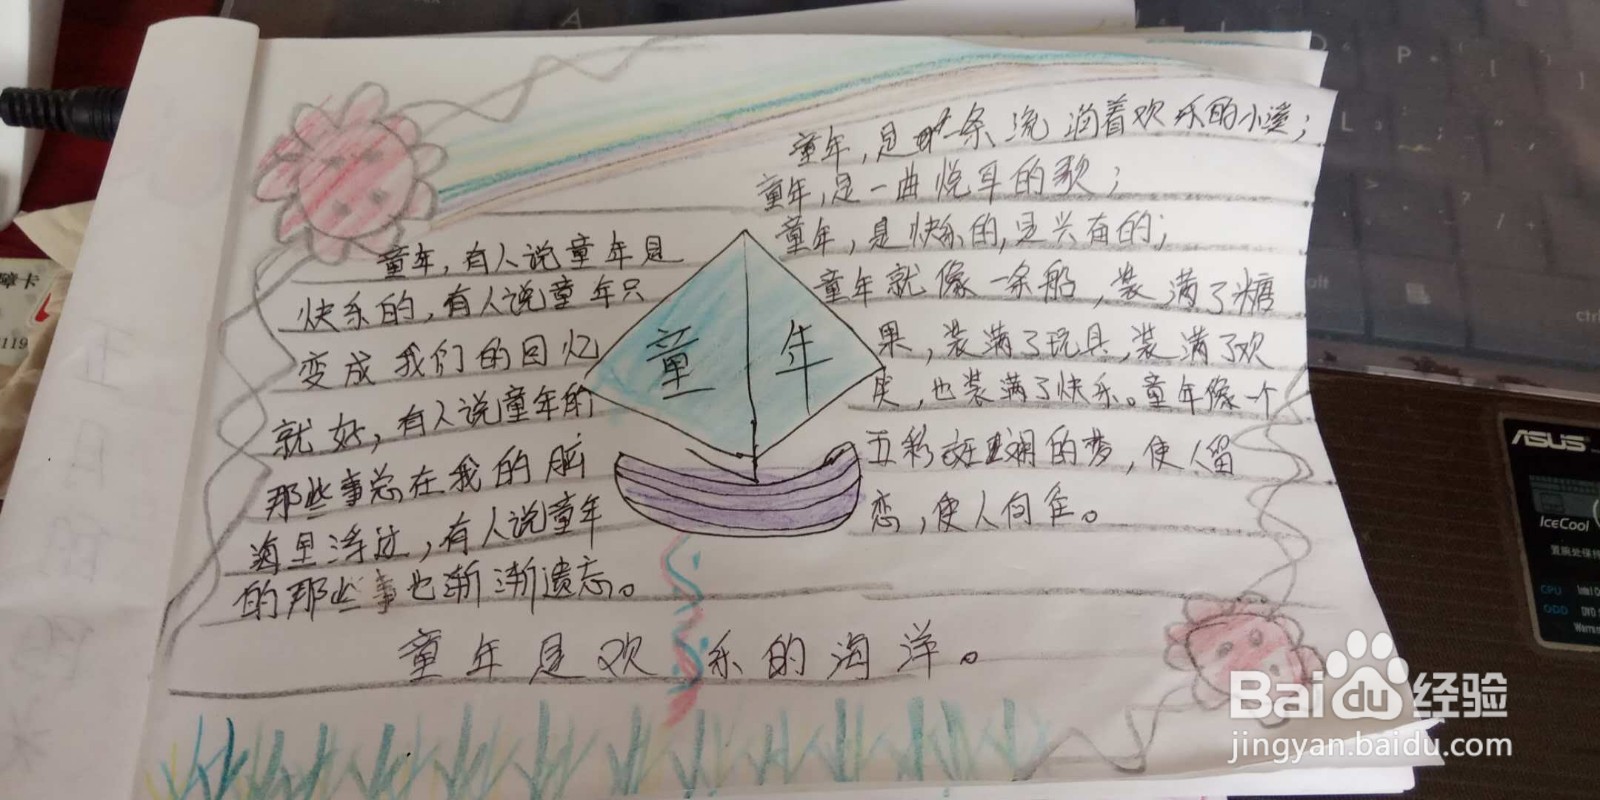 童年，有人说童年是
快乐的，有人说童年只
变成我们的回忆
就好，有人说童年的
那些事总在我的脑
海里浮过，有人说童年
的那些事也渐渐遗忘。
童年
童年，是一条流淌着欢乐的小溪；
童年，是一曲悦耳的歌；
童年，是快乐的，是兴奋的；
童年就像一条船，装满了糖
果，装满了玩具，装满了欢
笑，也装满了快乐。童年像一个
五彩斑斓的梦，使人留
恋，使人向往。
童年是欢乐的海洋。
ASUS
IceCool
CPU
Baidu经验
jingyan.baidu.com